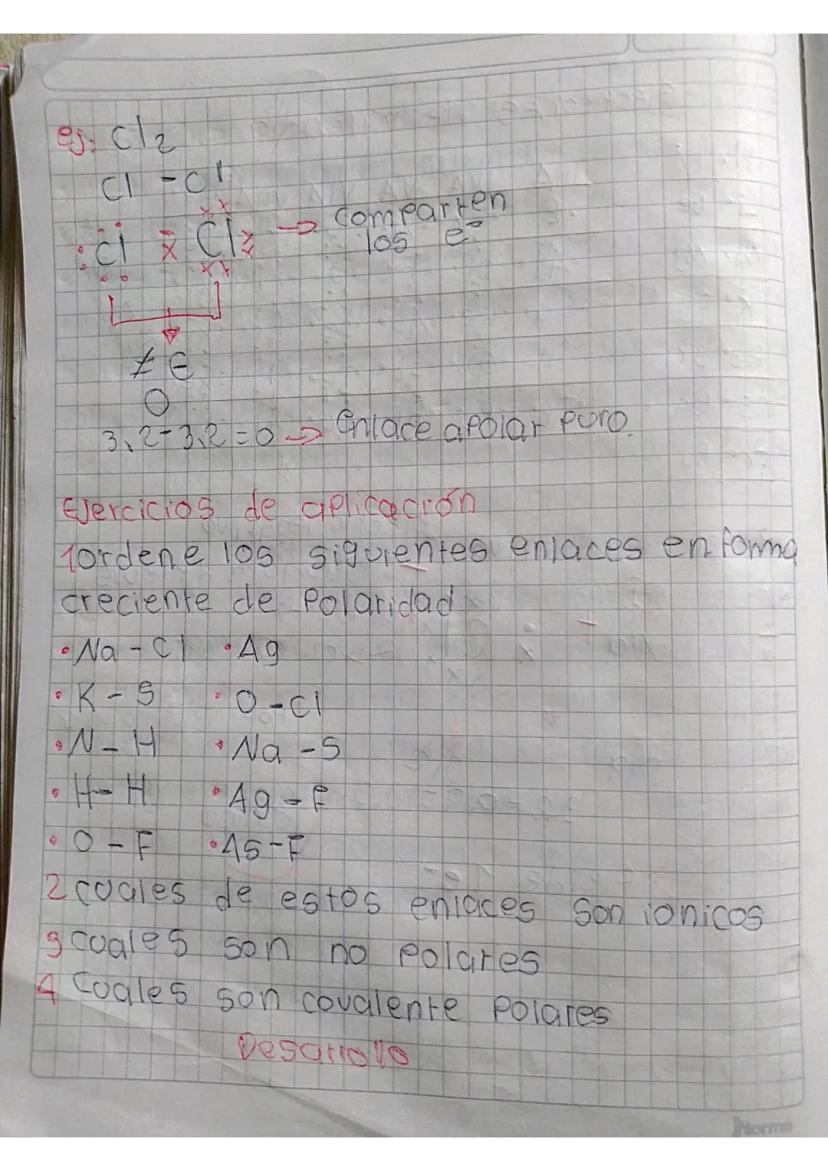 ej: Cl2
Cl - Cl
Cl Cl → comparten
los e-
≠ E
0
3,2-3,2=0 → Enlace apolar puro.
Ejercicios de aplicación
1ordene los siguientes enlaces en forma
creciente de polaridad
• Na - Cl • Ag
• K - S • O - Cl
• N - H • Na - S
• H - H • Ag - F
• O - F • As - F
2 cuales de estos enlaces son ionicos
3 cuales son no polares
4 Cuales son covalente polares
Desarrollo
Norma